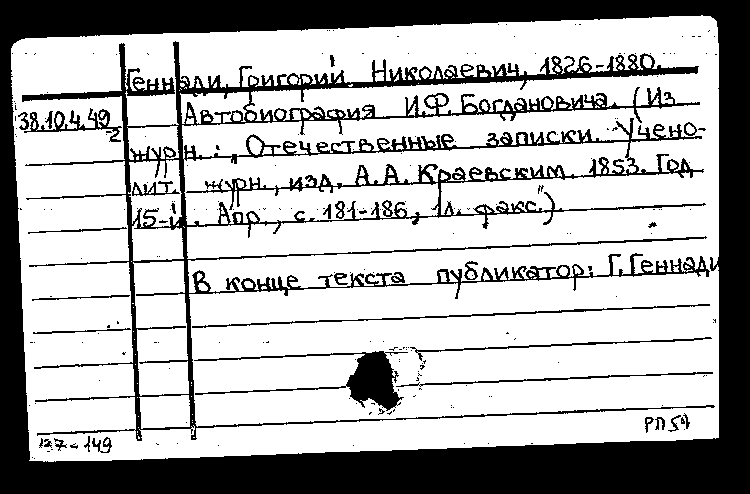 Геннади, Григорий Николаевич, 1826-1880.
38.10.4.49 Автобиография И.Ф. Богдановича. (Из
2
журн.: "Отечественные записки. Учено-
лит. журн., изд. А.А. Краевским. 1853. Год
15-й. Апр., с. 181-186, 1л. факс.").
В конце текста публикатор: Г. Геннади
137-149
РП 57